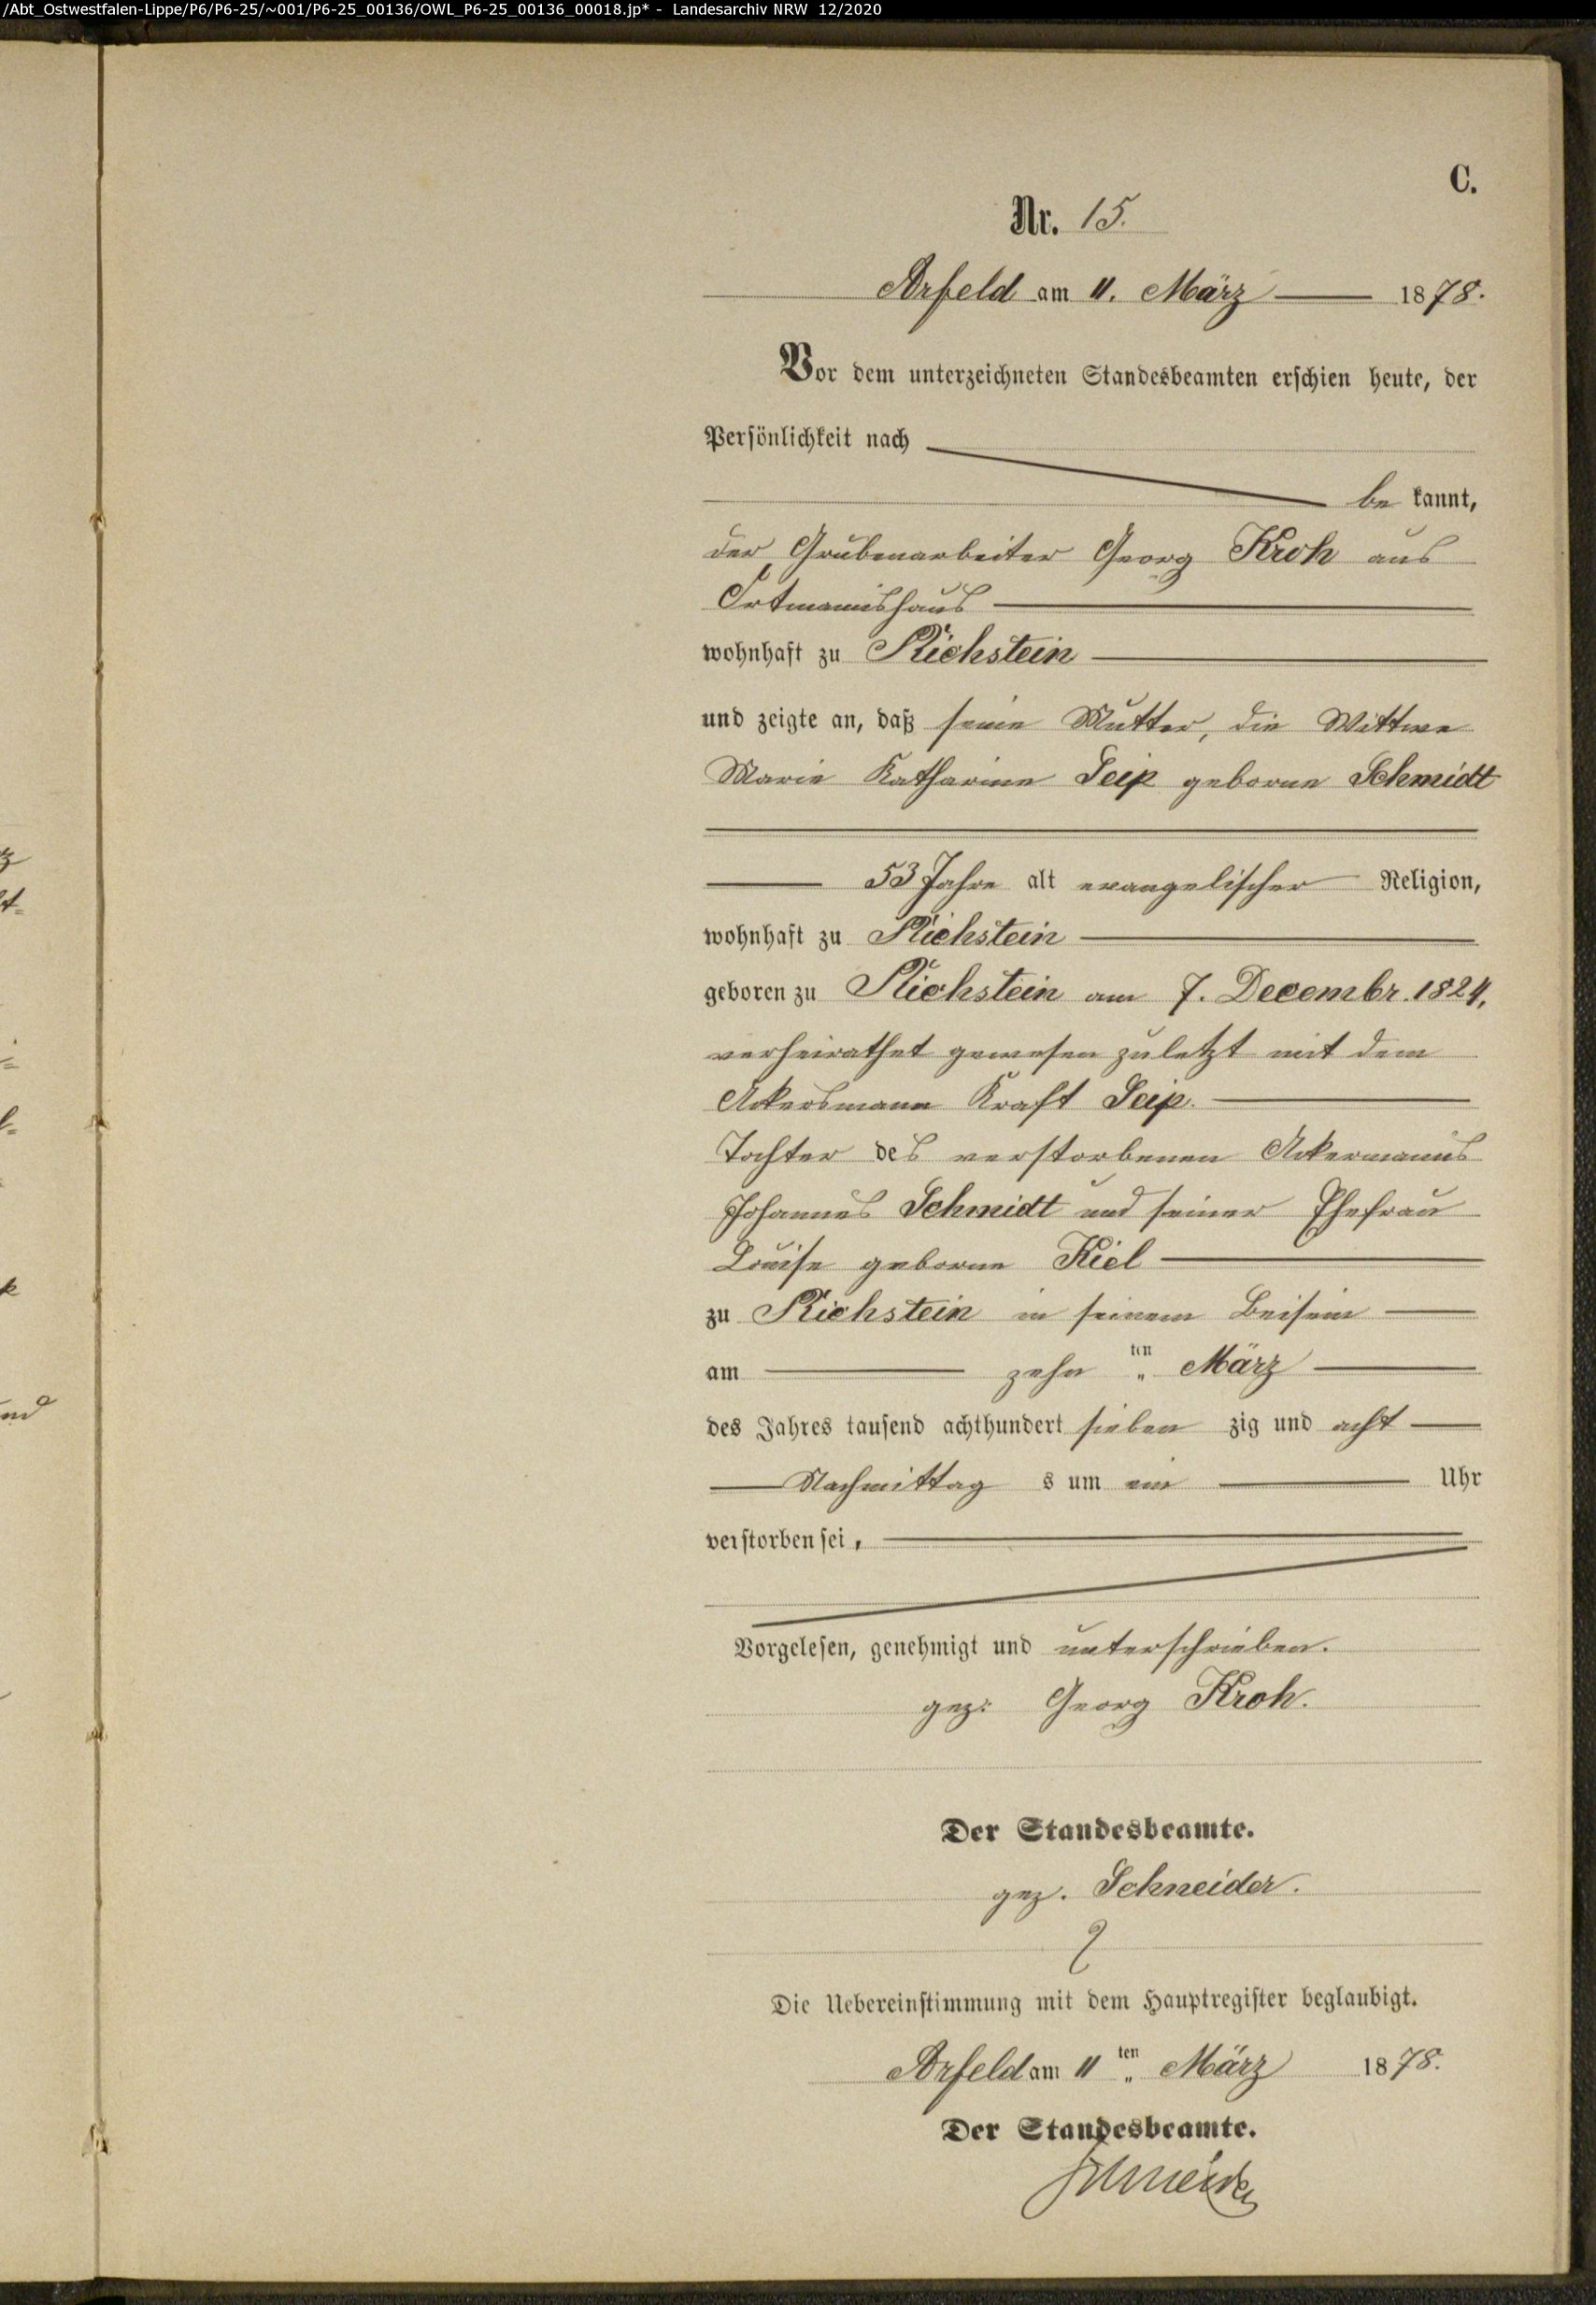 /Abt_Ostwestfalen-Lippe/P6/P6-25/~001/P6-25_00136/OWL_P6-25_00136_00018.jp* - Landesarchiv NRW 12/2020
C.
Nr. 15.
Arfeld am 11. März 1878.
Vor dem unterzeichneten Standesbeamten erschien heute, der
Persönlichkeit nach
be kannt,
der Grubenarbeiter Georg Kroh aus
Ortmannshaus
wohnhaft zu Richstein
und zeigte an, daß seine Mutter, die Wittwe
Marie Katharine Seip geborne Schmidt
53 Jahre alt evangelischer Religion,
wohnhaft zu Richstein
geboren zu Richstein am 7. Decembr. 1824,
verheirathet gewesen zuletzt mit dem
Ackersmann Kraft Seip.
Tochter des verstorbenen Ackermanns
Johannes Schmidt und seiner Ehefrau
Louise geborne Kiel
zu Richstein in seinem Beisein
am zehn ten März
des Jahres tausend achthundert sieben zig und acht
Nachmittag s um ein Uhr
verstorben sei,
Vorgelesen, genehmigt und unterschrieben.
gez: Georg Kroh.
Der Standesbeamte.
gez. Schneider.
Die Uebereinstimmung mit dem Hauptregister beglaubigt.
Arfeld am 11 ten März 1878.
Der Standesbeamte.
Schneider